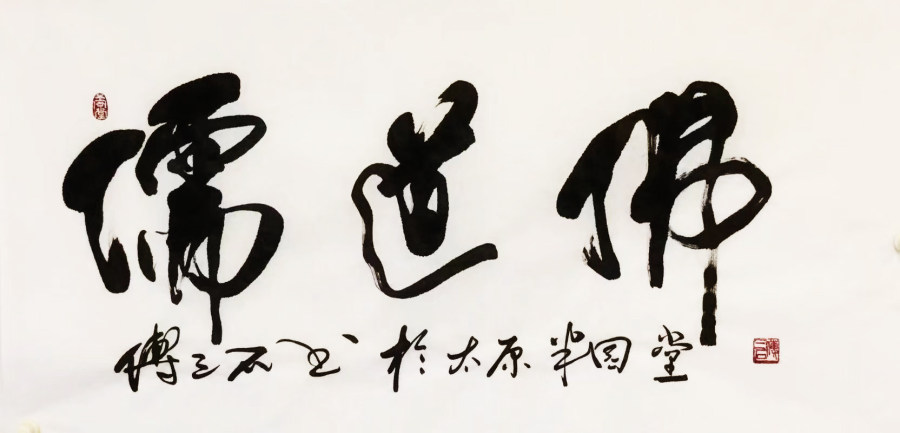 儒道佛
傅三石书 於太原半园堂